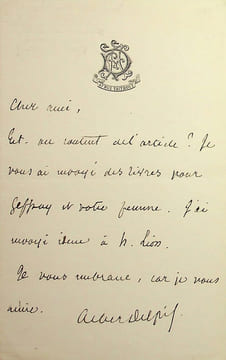 Cher ami,
Est-on content de l'article ? Je
vous ai envoyé des livres pour
Geffroy et votre femme. J'ai
envoyé idem à h. Lion.
Je vous embrasse, car je vous
aime.
Albert Delpit